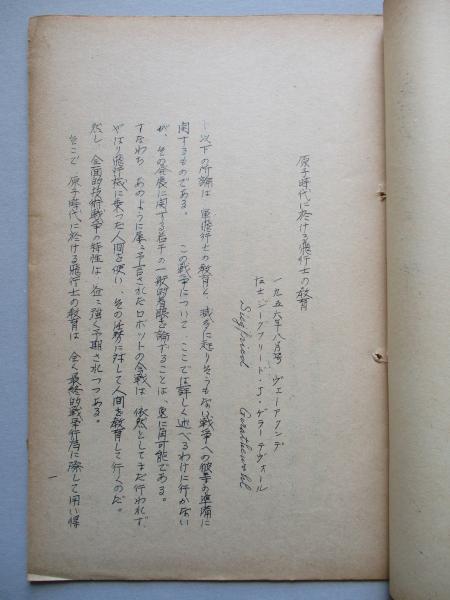 原子時代に於ける飛行士の教育
一九五六年八月号 ヴェーアクンデ
博士 ジークフリード・J・ゲラーテヴォール
Siegfried Gerathewohl
以下の所論は 軍飛行士の教育と、滅多に起りそうもない戦争への彼等の準備に
関するものである。 この戦争について、ここでは詳しく述べるわけに行かない
が、その発展に関する若干の一般的着眼を論ずることは、更に可能である。
すなわち あのように屡々予言されたロボットの合戦は 依然としてまだ行われず、
やはり飛行機に乗った人間を使い、その任務に対して人間を教育して行くのだ。
然し、全面的技術戦争の特性は 益々強く予期されつつある。
そこで 原子時代に於ける飛行士の教育は 全く最終的戦争行為に際して用い得
一